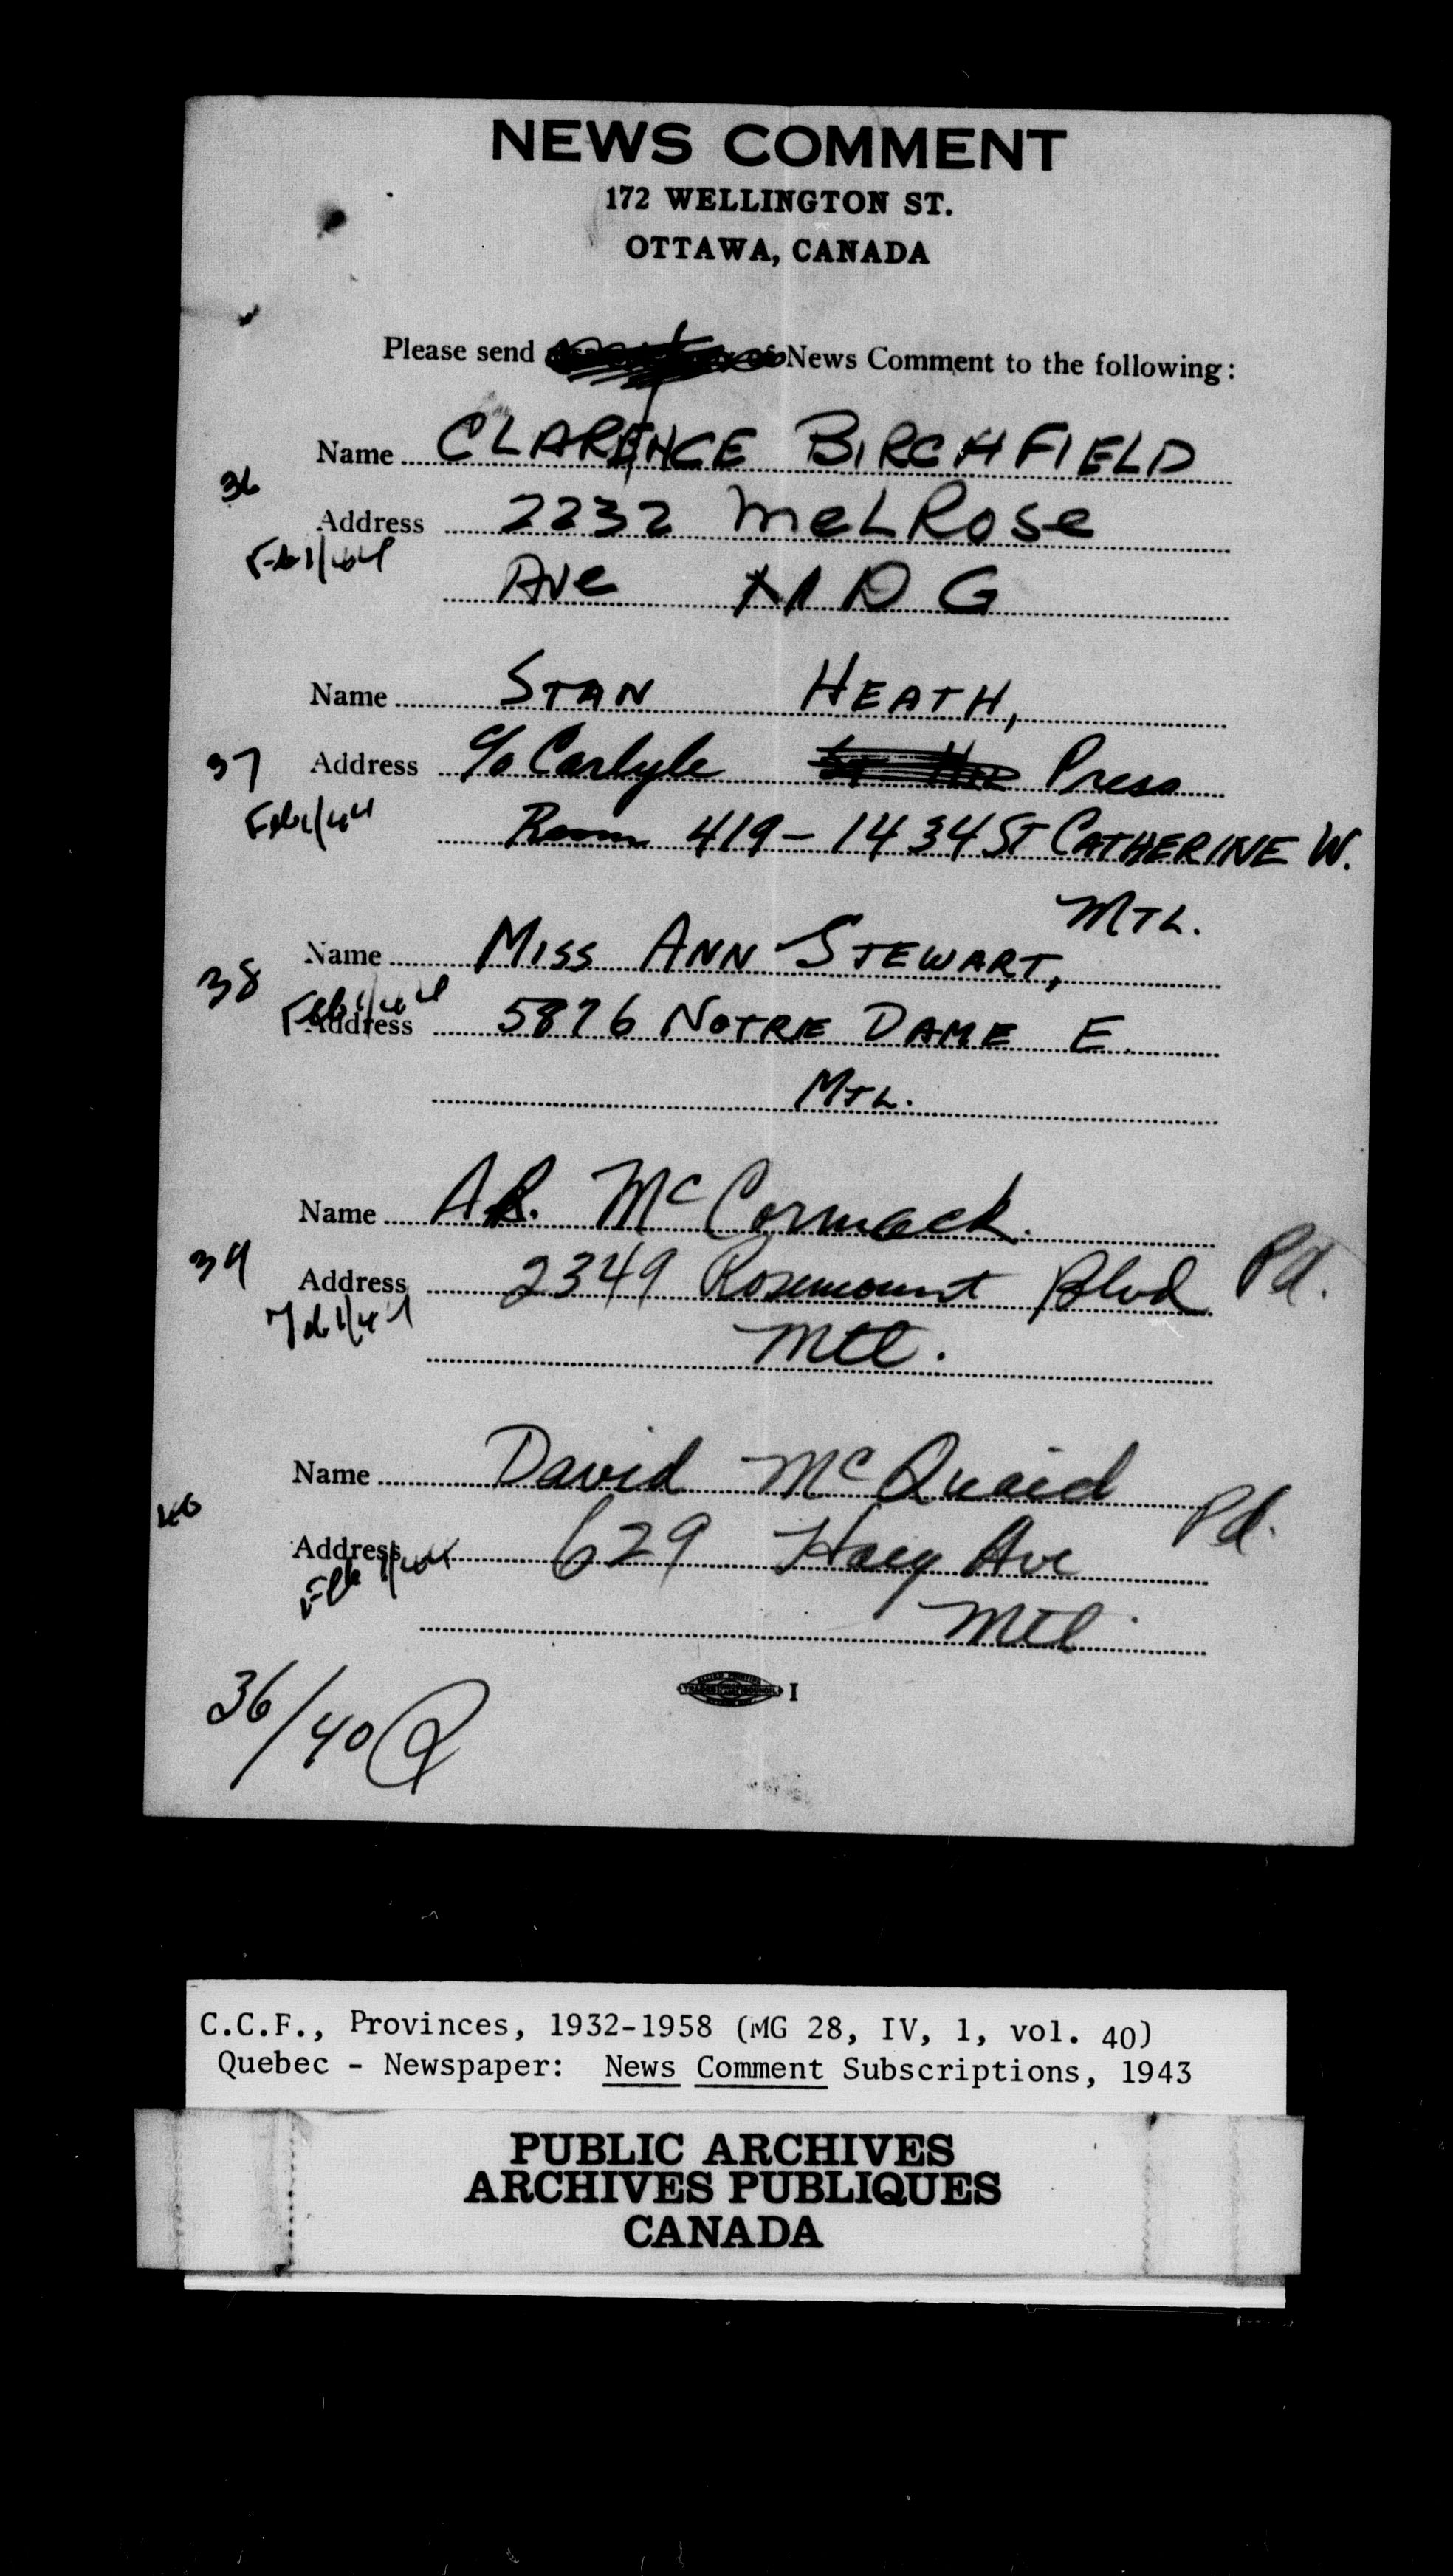 NEWS COMMENT
172 WELLINGTON ST.
OTTAWA, CANADA
Please send of News Comment to the following:
Name CLARENCE BIRCHFIELD
36
Address 2232 MeLRose
Feb 1/44
Ave N D G
Name STAN HEATH,
37 Address c/o Carlyle Press
Feb 1/44
Room 419 - 1434 ST CATHERINE W.
MTL.
Name MISS ANN STEWART,
38
Feb 1/44
Address 5876 NOTRE DAME E.
MTL.
Name A.R. McCormack.
39 Address 2349 Rosemount Blvd Pd.
Feb 1/44
Mtl.
Name David McQuaid
40 Pd.
Address 629 Ave
Feb 1/44
Mtl.
I
36/40 Q
C.C.F., Provinces, 1932-1958 (MG 28, IV, 1, vol. 40)
Quebec - Newspaper: News Comment Subscriptions, 1943
PUBLIC ARCHIVES
ARCHIVES PUBLIQUES
CANADA